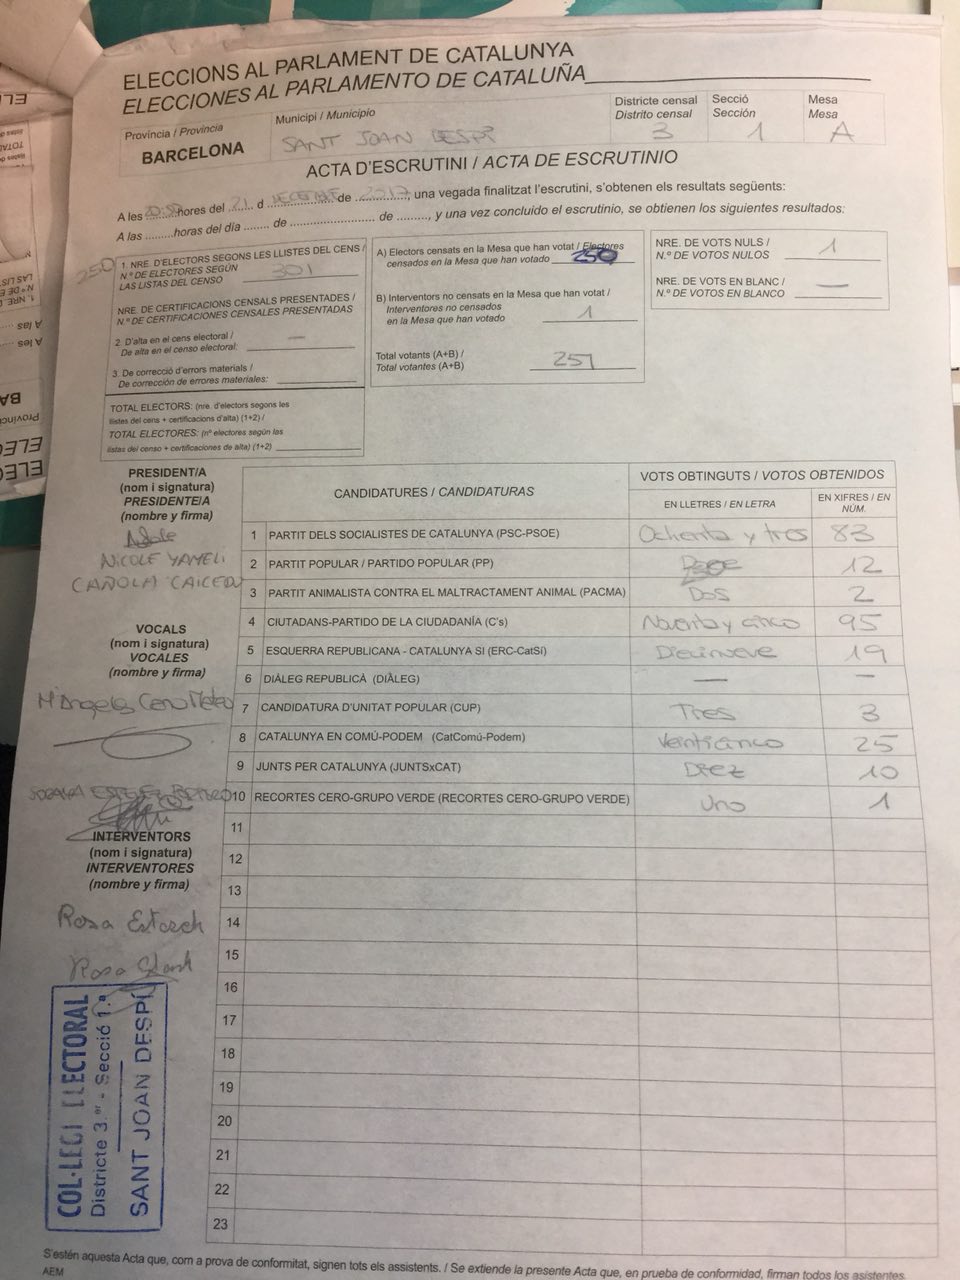 ELECCIONS AL PARLAMENT DE CATALUNYA
ELECCIONES AL PARLAMENTO DE CATALUÑA
Província / Provincia
BARCELONA
Municipi / Municipio
SANT JOAN DESPÍ
Districte censal
Distrito censal
3
Secció
Sección
1
Mesa
Mesa
A
ACTA D'ESCRUTINI / ACTA DE ESCRUTINIO
A les ......... hores del 21 d ......... de 2017, una vegada finalitzat l'escrutini, s'obtenen els resultats següents:
A las ......... horas del día ....... de ........................ de ........., y una vez concluido el escrutinio, se obtienen los siguientes resultados:
250
1. NRE. D'ELECTORS SEGONS LES LLISTES DEL CENS /
N.º DE ELECTORES SEGÚN
LAS LISTAS DEL CENSO 301
NRE. DE CERTIFICACIONS CENSALS PRESENTADES /
N.º DE CERTIFICACIONES CENSALES PRESENTADAS
2. D'alta en el cens electoral /
De alta en el censo electoral: —
3. De correcció d'errors materials /
De corrección de errores materiales:
TOTAL ELECTORS: (nre. d'electors segons les
llistes del cens + certificacions d'alta) (1+2) /
TOTAL ELECTORES: (nº electores según las
listas del censo + certificaciones de alta) (1+2)
A) Electors censats en la Mesa que han votat / Electores
censados en la Mesa que han votado 250
B) Interventors no censats en la Mesa que han votat /
Interventores no censados
en la Mesa que han votado 1
Total votants (A+B) /
Total votantes (A+B) 251
NRE. DE VOTS NULS /
N.º DE VOTOS NULOS 1
NRE. DE VOTS EN BLANC /
N.º DE VOTOS EN BLANCO —
PRESIDENT/A
(nom i signatura)
PRESIDENTE/A
(nombre y firma)
NICOLE YAMELI
CAÑOLA CAICEDO
VOCALS
(nom i signatura)
VOCALES
(nombre y firma)
INTERVENTORS
(nom i signatura)
INTERVENTORES
(nombre y firma)
Rosa Estarch
CANDIDATURES / CANDIDATURAS
VOTS OBTINGUTS / VOTOS OBTENIDOS
EN LLETRES / EN LETRA
EN XIFRES / EN NÚM.
1 PARTIT DELS SOCIALISTES DE CATALUNYA (PSC-PSOE) Ochenta y tres 83
2 PARTIT POPULAR / PARTIDO POPULAR (PP) Doce 12
3 PARTIT ANIMALISTA CONTRA EL MALTRACTAMENT ANIMAL (PACMA) Dos 2
4 CIUTADANS-PARTIDO DE LA CIUDADANÍA (C's) Noventa y cinco 95
5 ESQUERRA REPUBLICANA - CATALUNYA SÍ (ERC-CatSí) Diecinueve 19
6 DIÀLEG REPUBLICÀ (DIÀLEG) — —
7 CANDIDATURA D'UNITAT POPULAR (CUP) Tres 3
8 CATALUNYA EN COMÚ-PODEM (CatComú-Podem) Veinticinco 25
9 JUNTS PER CATALUNYA (JUNTSxCAT) Diez 10
10 RECORTES CERO-GRUPO VERDE (RECORTES CERO-GRUPO VERDE) Uno 1
11
12
13
14
15
16
17
18
19
20
21
22
23
COL·LEGI ELECTORAL
Districte 3.er - Secció 1.ª
SANT JOAN DESPÍ
S'estén aquesta Acta que, com a prova de conformitat, signen tots els assistents. / Se extiende la presente Acta que, en prueba de conformidad, firman todos los asistentes.
AEM